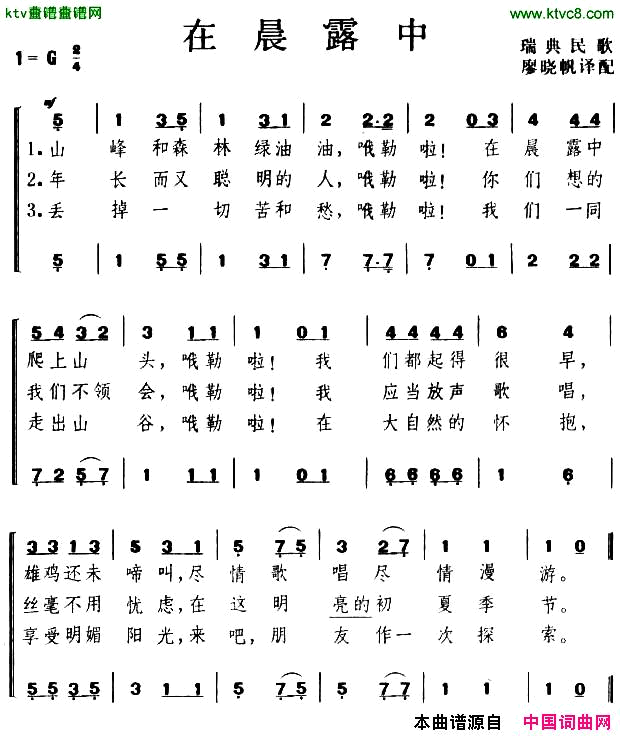 ktv壹谱壹谱网
www.ktvc8.com
在晨露中
1=G 2/4
瑞典民歌
廖晓帆译配
mf
5 | 1 35 | 1 31 | 2 2·2 | 2 02 | 4 44
1.山 峰 和森 林 绿油 油,哦勒 啦! 在 晨 露中
2.年 长 而又 聪 明的 人,哦勒 啦! 你 们 想的
3.丢 掉 一 切 苦和 愁,哦勒 啦! 我 们 一同
5 | 1 55 | 1 31 | 7 7·7 | 7 01 | 2 22
54 32 | 3 11 | 1 01 | 44 44 | 6 4
爬上山 头,哦勒 啦! 我 们都起得 很 早,
我们不领 会,哦勒 啦! 我 应当放声 歌 唱,
走出山 谷,哦勒 啦! 在 大自然的 怀 抱,
72 57 | 1 11 | 1 01 | 66 66 | 1 6
33 13 | 5 31 | 5 75 | 3 27 | 1 1 | 1 0
雄鸡还未 啼 叫,尽 情 歌 唱 尽 情 漫 游。
丝毫不用 忧 虑,在 这 明 亮的 初 夏 季 节。
享受明媚 阳 光,来 吧,朋 友 作一 次 探 索。
55 35 | 5 31 | 5 75 | 3 27 | 1 1 | 1 0
本曲谱源自 中国词曲网